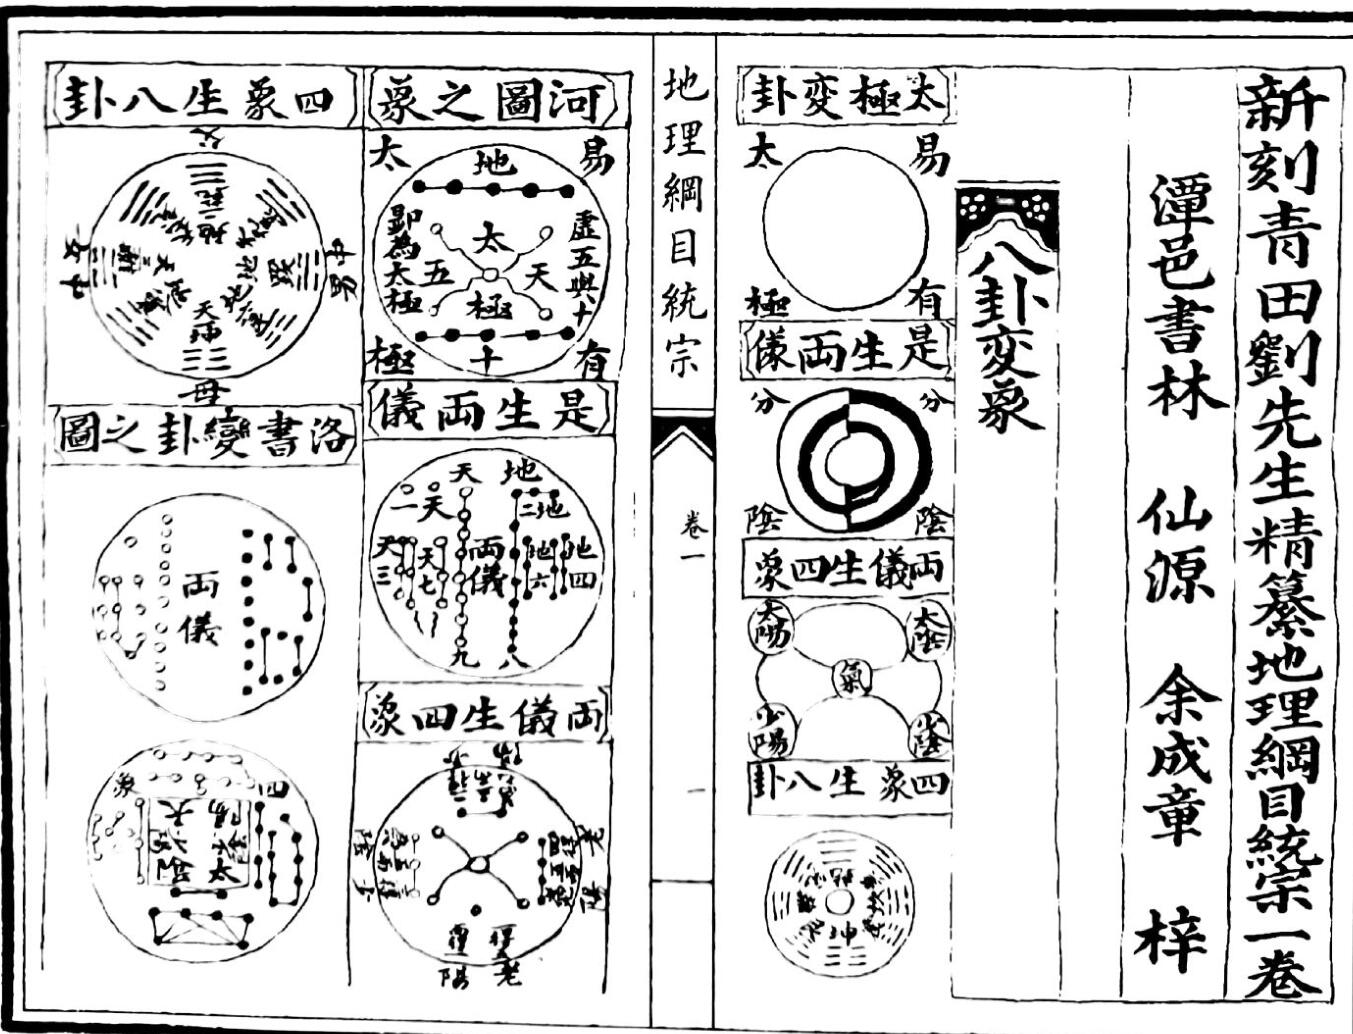 新刻青田劉先生精纂地理綱目統宗一卷
潭邑書林 仙源 余成章 梓
八卦变象
太極变卦
易有太極
是生両儀
分陰
分陰
両儀生四象
太陰
太陽
氣
少陰
少陽
四象生八卦
坤
地理綱目統宗
卷一
一
河圖之象
易有太極
地
虚五與十
即為太極
太極
天五
十
是生両儀
天
地
天一
地二
天三
地四
地六
天七
両儀
九
八
両儀生四象
老
陽
陰
四象生八卦
父
中男
中女
母
洛書變卦之圖
両儀
四象
太
陽